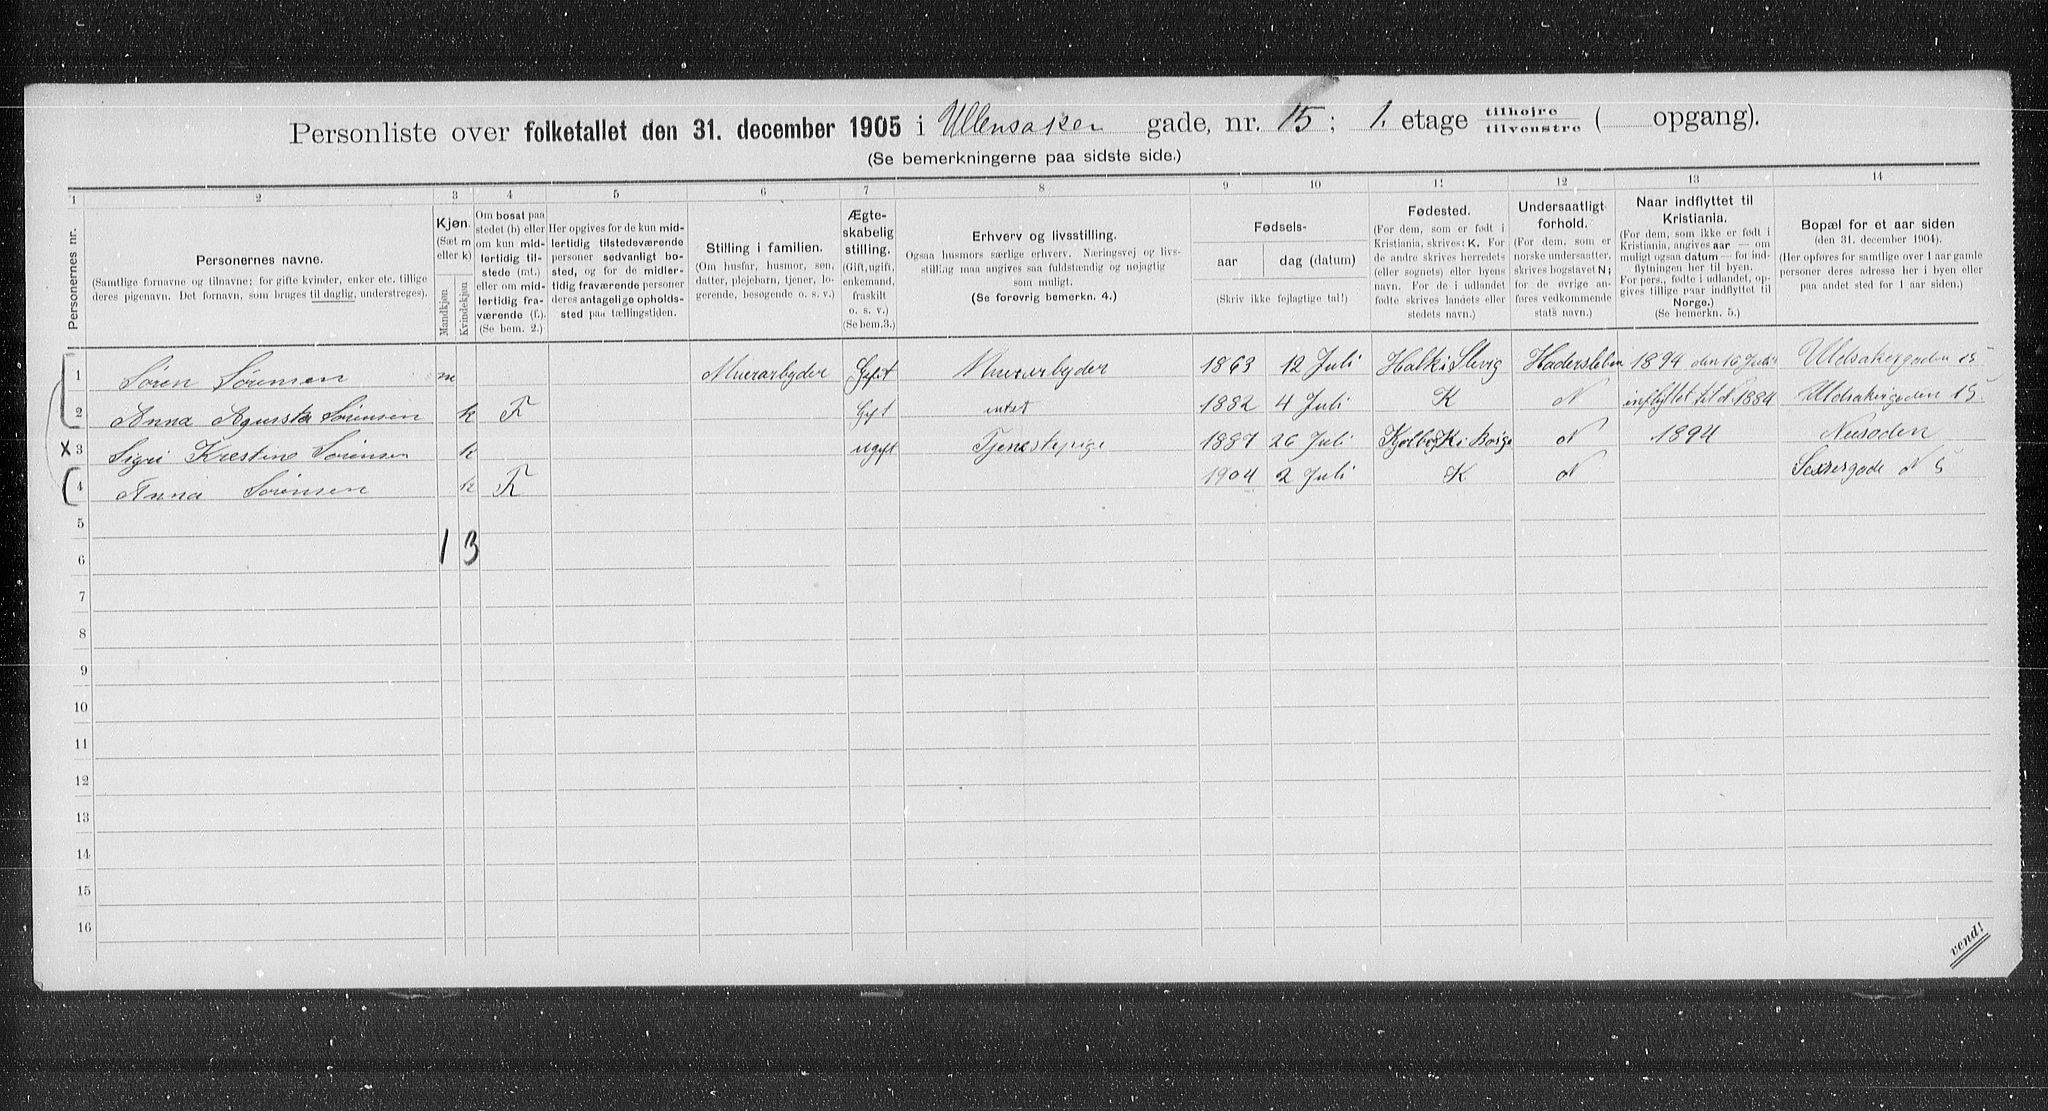 Personliste over folketallet den 31. december 1905 i Ullensaker gade, nr. 15; 1. etage tilhøjre / tilvenstre ( opgang).
(Se bemerkningerne paa sidste side.)
1 2 3 4 5 6 7 8 9 10 11 12 13 14
Personernes nr.
Personernes navne.
(Samtlige fornavne og tilnavne; for gifte kvinder, enker etc. tillige
deres pigenavn. Det fornavn, som bruges til daglig, understreges).
Kjøn.
(Sæt m
eller k)
Mandkjøn
Kvindekjøn
Om bosat paa
stedet (b) eller
om kun mid-
lertidig til-
stede (mt.)
eller om mid-
lertidig fra-
værende (f.).
(Se bem. 2.)
Her opgives for de kun mid-
lertidig tilstedeværende
personer sedvanligt bo-
sted, og for de midler-
tidig fraværende personer
deres antagelige opholds-
sted paa tællingstiden.
Stilling i familien.
(Om husfar, husmor, søn,
datter, plejebarn, tjener, lo-
gerende, besøgende o. s. v.)
Ægte-
skabelig
stilling.
(Gift, ugift,
enkemand,
fraskilt
o. s. v.)
(Se bem. 3.)
Erhverv og livsstilling.
Ogsaa husmors særlige erhverv. Næringsvej og livs-
stilling maa angives saa fuldstændig og nøjagtig
som muligt.
(Se forøvrig bemerkn. 4.)
Fødsels-
aar
dag (datum)
(Skriv ikke fejlagtige tal!)
Fødested.
(For dem, som er født i
Kristiania, skrives: K. For
de andre skrives herredets
(eller sognets) eller byens
navn. For de i udlandet
fødte skrives landets eller
stedets navn.)
Undersaatligt
forhold.
(For dem, som er
norske undersaatter,
skrives bogstavet N;
for de øvrige an-
føres vedkommende
stats navn.)
Naar indflyttet til
Kristiania.
(For dem, som ikke er født i
Kristiania, angives aar — om
muligt ogsaa datum — for ind-
flytningen her til byen.
For pers., fødte i udlandet, op-
gives tillige naar indflyttet til
Norge.)
(Se bemerkn. 5.)
Bopæl for et aar siden
(den 31. december 1904).
(Her opføres for samtlige over 1 aar gamle
personer deres adresse her i byen eller
paa andet sted for 1 aar siden.)
1 Søren Sørensen m Murarbyder Gift Murarbyder 1863 12 Juli Halk i Slevig Hadersleben 1894 den 16 Juli Uldsakergaden 15
2 Anna Agusste Sørensen k F Gift intet 1882 4 Juli K N inflyttet til d. 1884 Uldsakergaden 15
X 3 Sigri Krestine Sørensen k ugift Tjenestepige 1887 26 Juli N 1894 Nesoden
4 Anna Sørensen k F 1904 2 Juli K N N 5
5
1 3
6
7
8
9
10
11
12
13
14
15
16
vend!